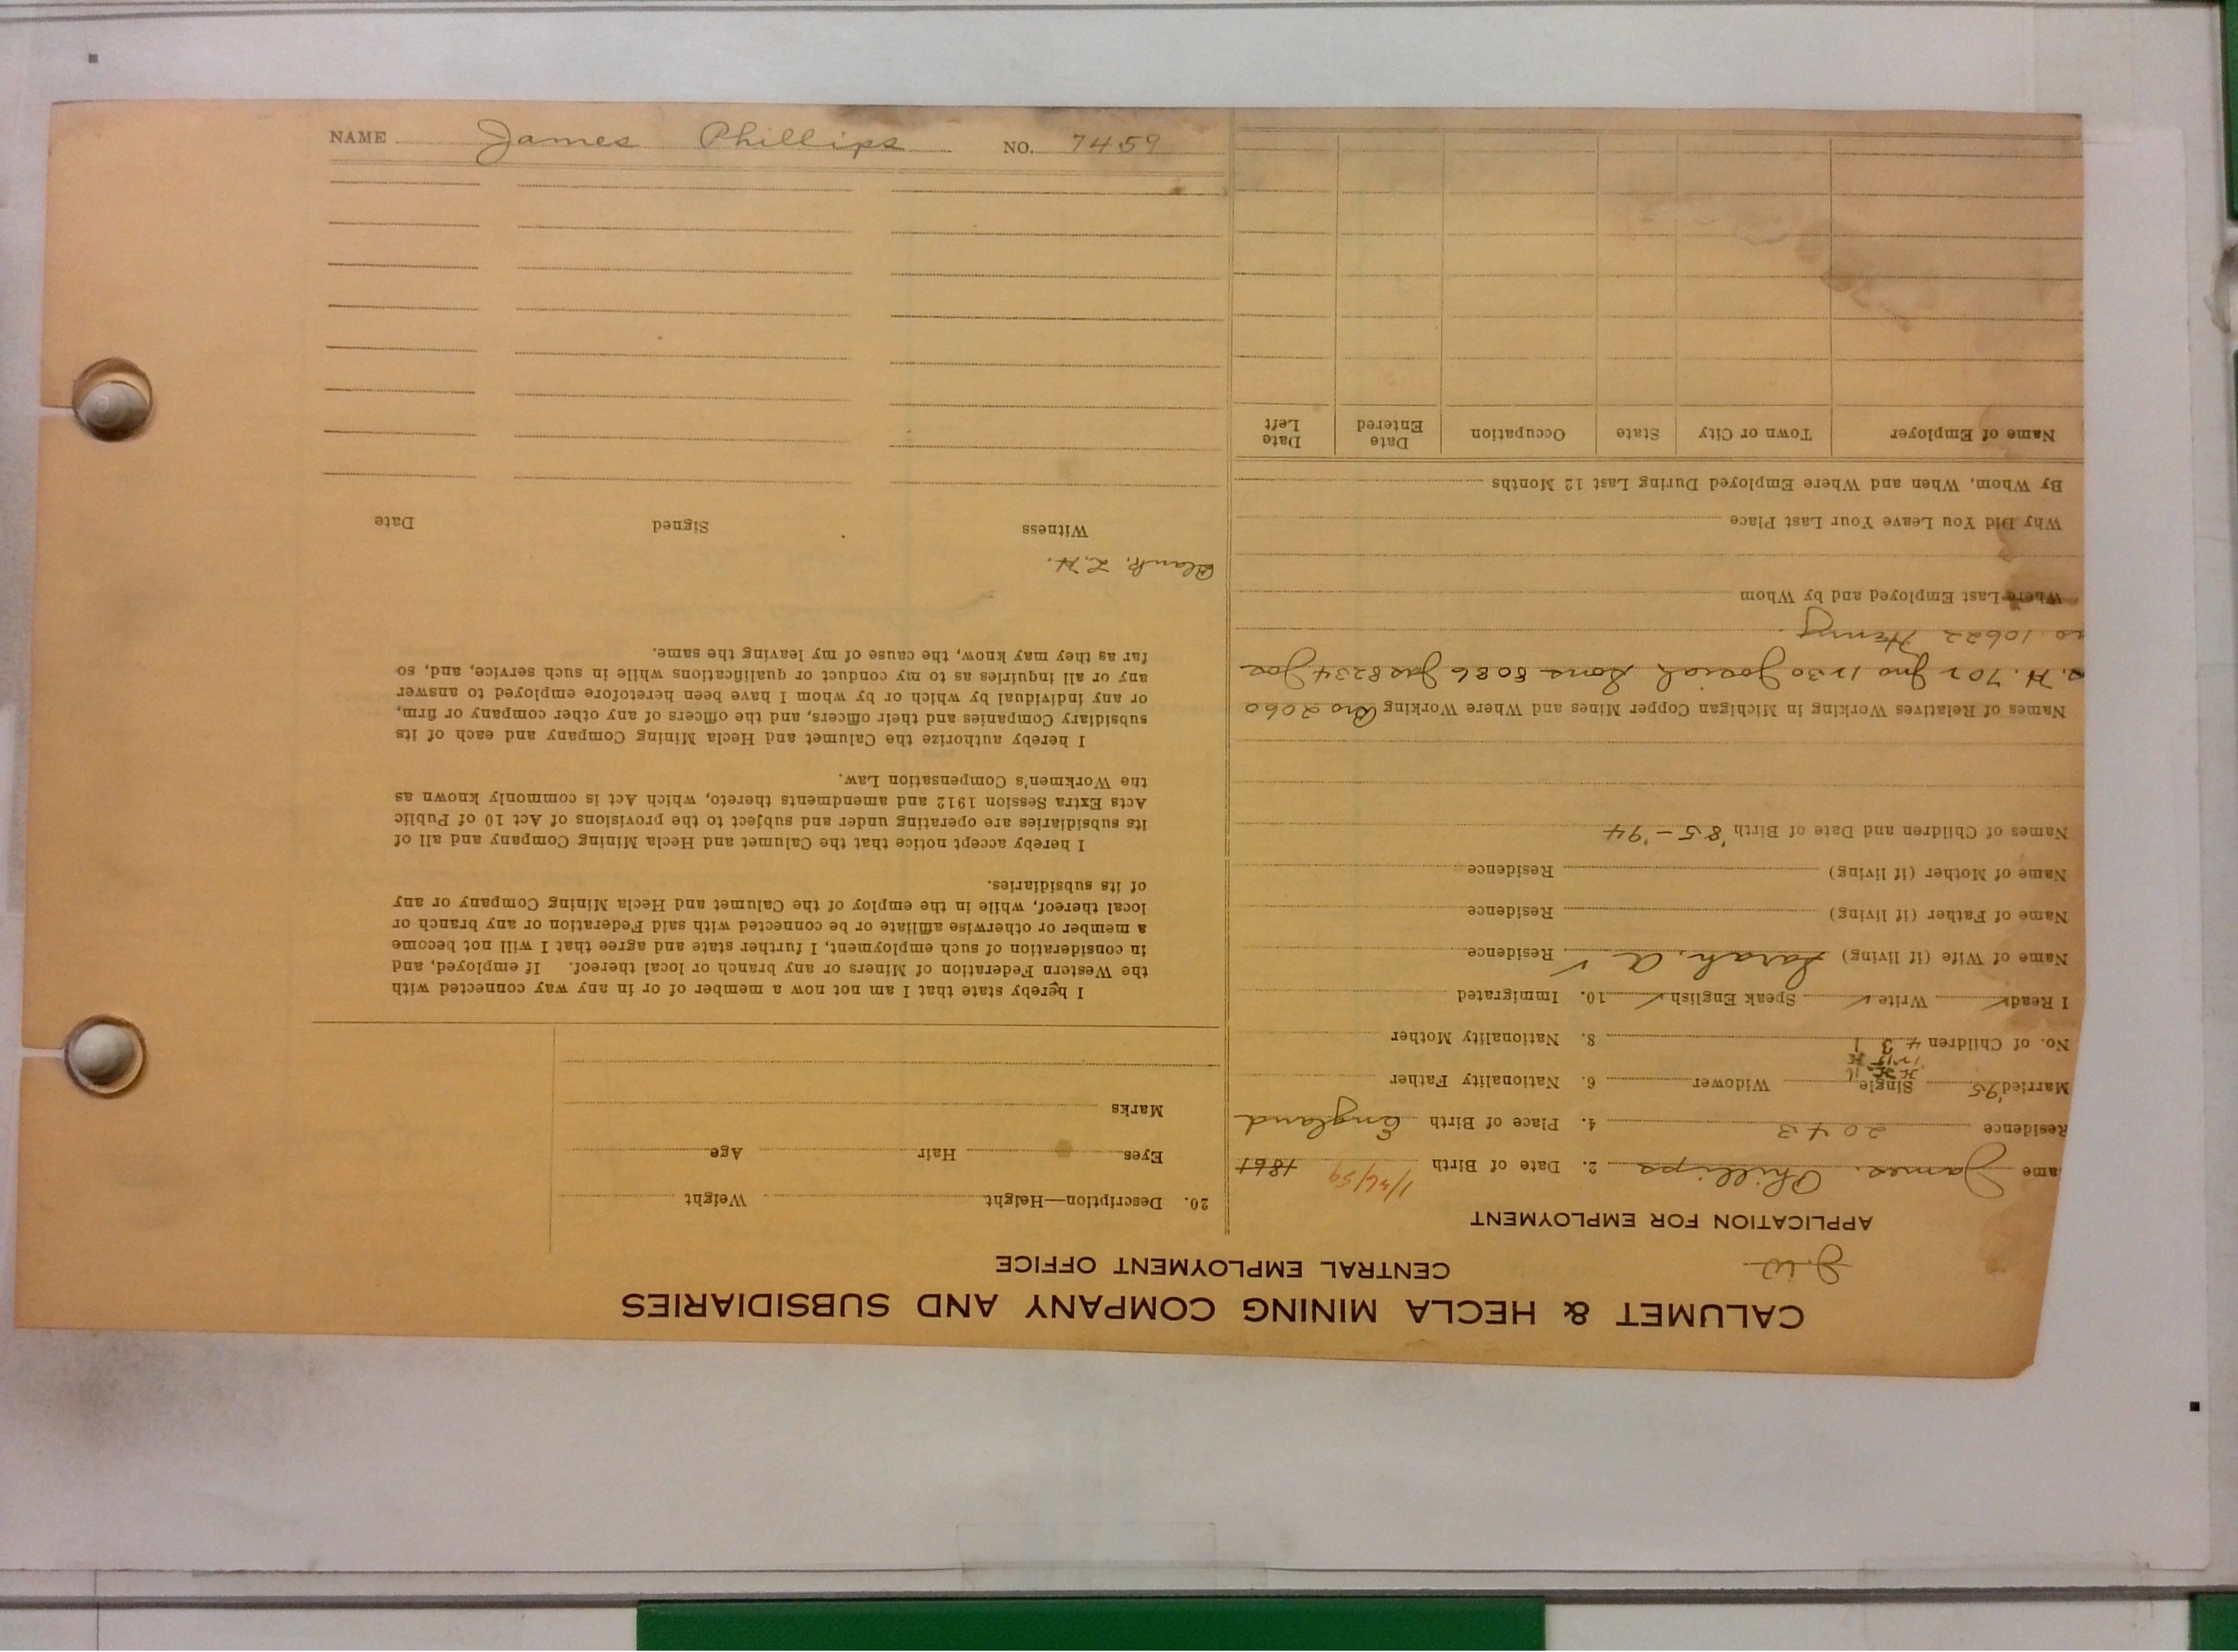 NAME James Phillips NO. 7459
CALUMET & HECLA MINING COMPANY AND SUBSIDIARIES
CENTRAL EMPLOYMENT OFFICE
J.W
APPLICATION FOR EMPLOYMENT
ame James Phillips 2. Date of Birth 1/26/59 1861
Residence 2043 4. Place of Birth England
Married '95 Single Widower 6. Nationality Father
No. of Children 4 3 1 8. Nationality Mother
I Read ✓ Write ✓ Speak English ✓ 10. Immigrated
Name of Wife (if living) Sarah. A ✓ Residence
Name of Father (if living) Residence
Name of Mother (if living) Residence
Names of Children and Date of Birth '85 - '94
Names of Relatives Working in Michigan Copper Mines and Where Working Bro 2060
H. 702 Jno 1230 Josiah Sons 8086 Jas 8234 Joe
no 10622 Henry
Where Last Employed and by Whom
Why Did You Leave Your Last Place
By Whom, When and Where Employed During Last 12 Months
Name of Employer Town or City State Occupation Date Entered Date Left
20. Description—Height Weight
Eyes Hair Age
Marks
I hereby state that I am not now a member of or in any way connected with
the Western Federation of Miners or any branch or local thereof. If employed, and
in consideration of such employment, I further state and agree that I will not become
a member or otherwise affiliate or be connected with said Federation or any branch or
local thereof, while in the employ of the Calumet and Hecla Mining Company or any
of its subsidiaries.
I hereby accept notice that the Calumet and Hecla Mining Company and all of
its subsidiaries are operating under and subject to the provisions of Act 10 of Public
Acts Extra Session 1912 and amendments thereto, which Act is commonly known as
the Workmen's Compensation Law.
I hereby authorize the Calumet and Hecla Mining Company and each of its
subsidiary Companies and their officers, and the officers of any other company or firm,
or any individual by which or by whom I have been heretofore employed to answer
any or all inquiries as to my conduct or qualifications while in such service, and, so
far as they may know, the cause of my leaving the same.
Blank. L.H.
Witness Signed Date